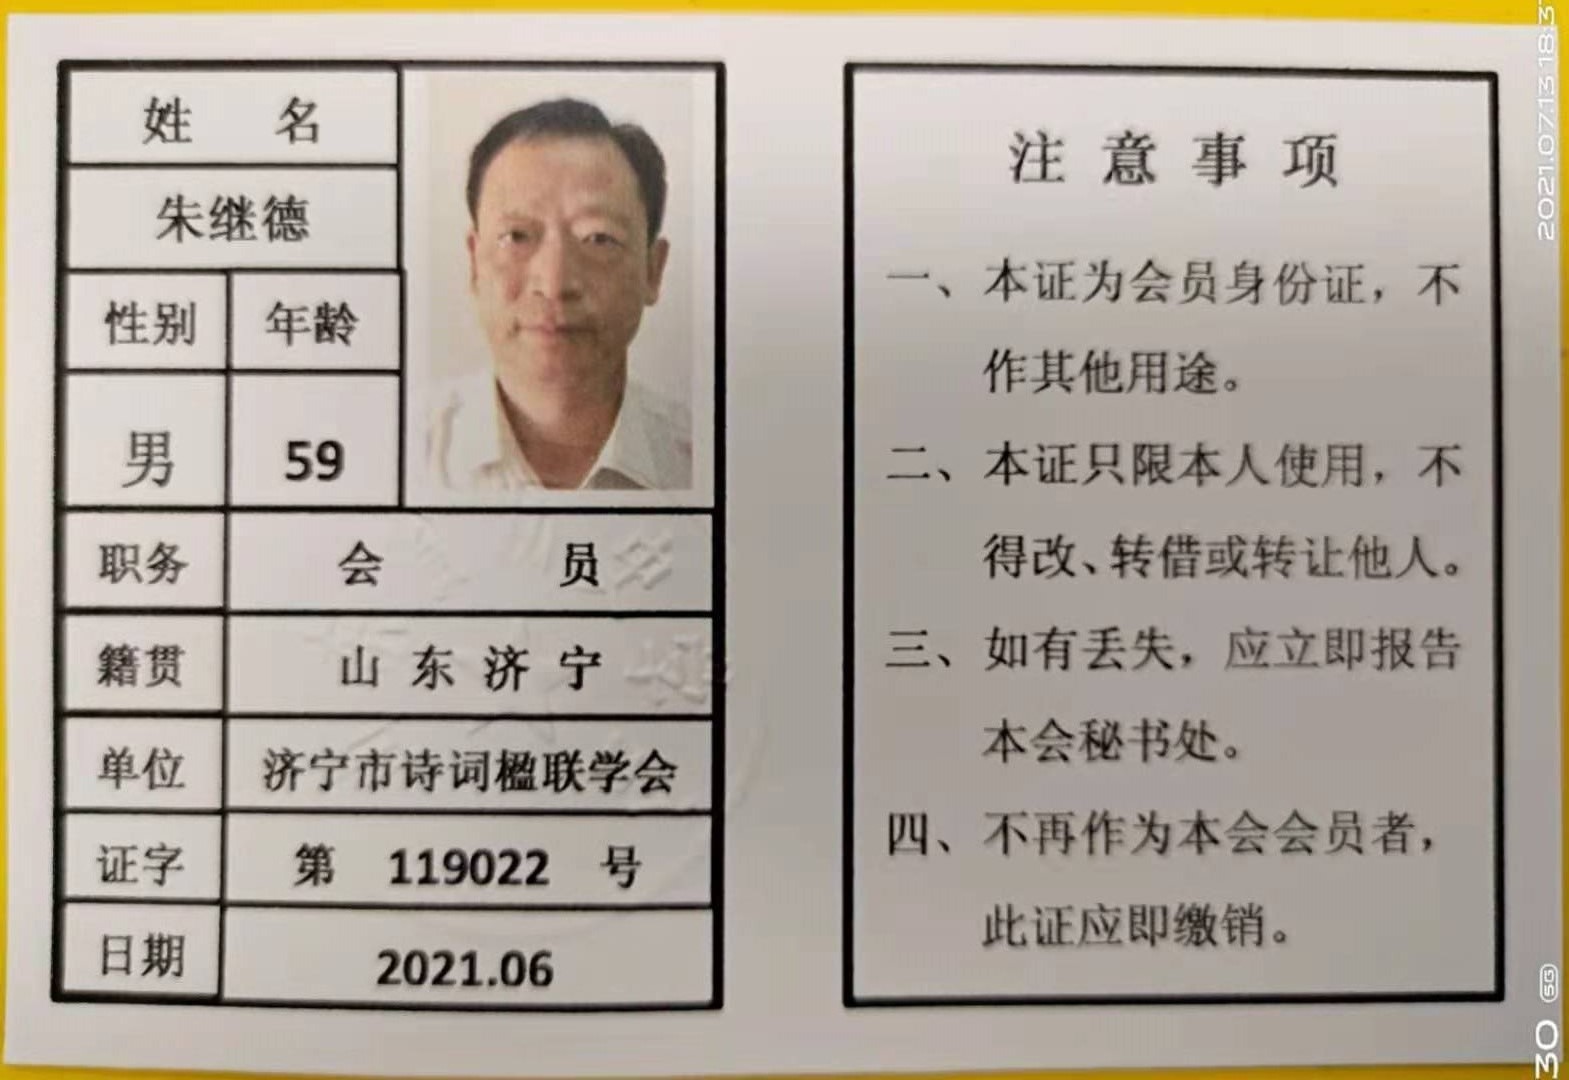 姓 名
朱继德
性别 年龄
男 59
职务 会 员
籍贯 山东济宁
单位 济宁市诗词楹联学会
证字 第 119022 号
日期 2021.06
注意事项
一、本证为会员身份证，不
作其他用途。
二、本证只限本人使用，不
得改、转借或转让他人。
三、如有丢失，应立即报告
本会秘书处。
四、不再作为本会会员者，
此证应即缴销。
2021.07.13 18:3
30 5G